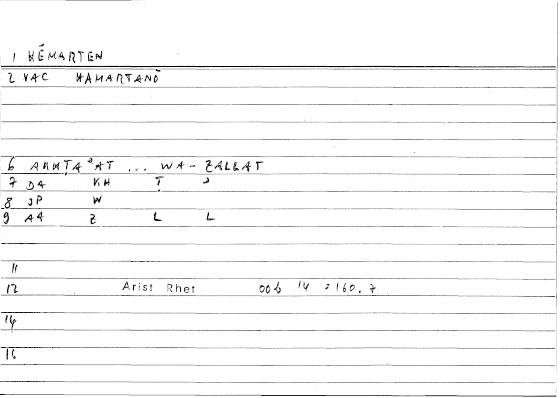 1 HĒMARTEN
2 VAC HAMARTANŌ
6 AḪḪṬAʾAT ... WA-ZALLAT
7 DA ḪḪ Ṭ ʾ
8 JP W
9 A4 Z L L
11
12 Arist Rhet 00b 14 = 160, 7
14
16